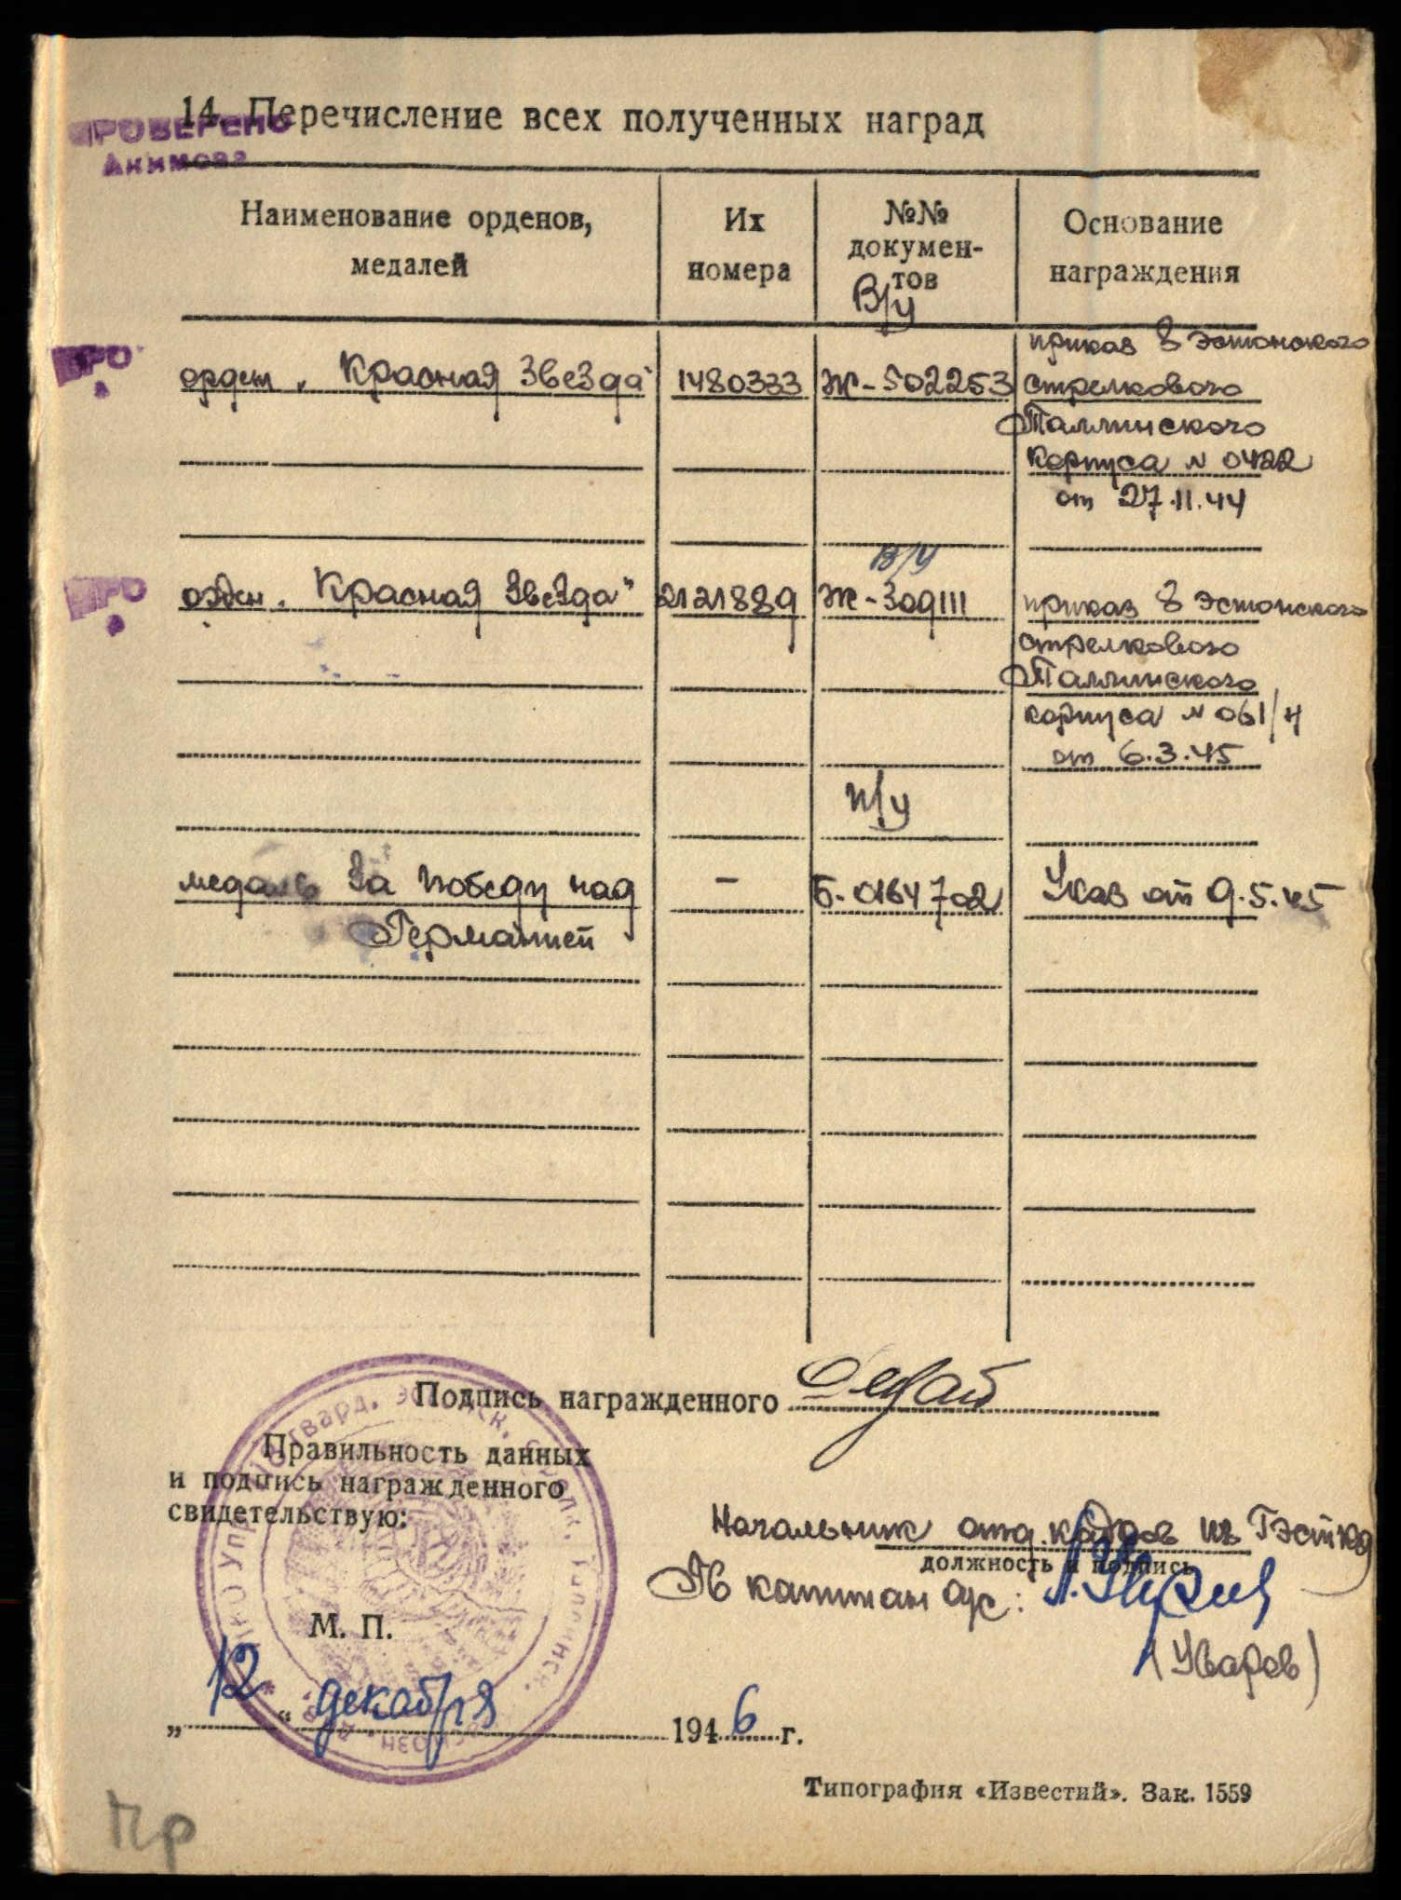 14. Перечисление всех полученных наград
ПРОВЕРЕНО
Акимова
Наименование орденов,
медалей
Их
номера
№№
докумен-
тов
В/у
Основание
награждения
ПРО
орден „Красная Звезда"
1480333
Ж-502253
приказ 8 Эстонского
стрелкового
Таллинского
корпуса N 0422
от 27.11.44
В/У
ПРО
орден „Красная Звезда"
2121889
Ж-309111
приказ 8 Эстонского
стрелкового
Таллинского
корпуса N 061/н
от 6.3.45
п/у
медаль За победу над
Германией
—
Б-0164702
Указ от 9.5.45
Подпись награжденного
Правильность данных
и подпись награжденного
свидетельствую:
Начальник отд. кадров
должность и подпись
капитан а/с:
(Уваров)
М. П.
„12" декабря 1946 г.
Типография «Известий». Зак. 1559
Пр